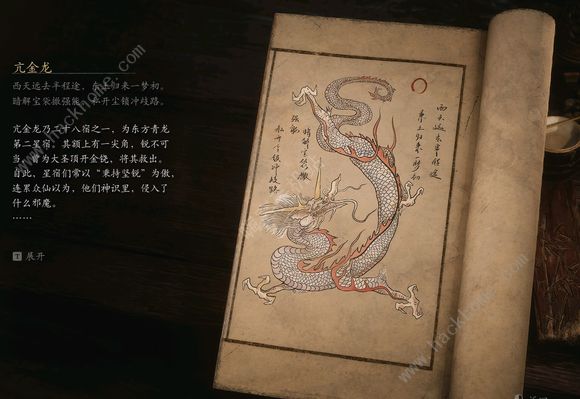 亢金龙
西天远去半程途，东土归来一梦初。
暗解宝袋撤强能，私开尘锁冲歧路。
亢金龙乃二十八宿之一，为东方青龙
第二星宿。其额上有一尖角，锐不可
当，曾为大圣顶开金铙，将其救出。
自此，星宿们常以“秉持坚锐”为傲，
连累众仙以为，他们神识里，侵入了
什么邪魔。
……
T 展开
西天远去半程途
东土归来一梦初
暗解宝袋撤
强能
私开尘锁冲歧路
www.hackhome.com